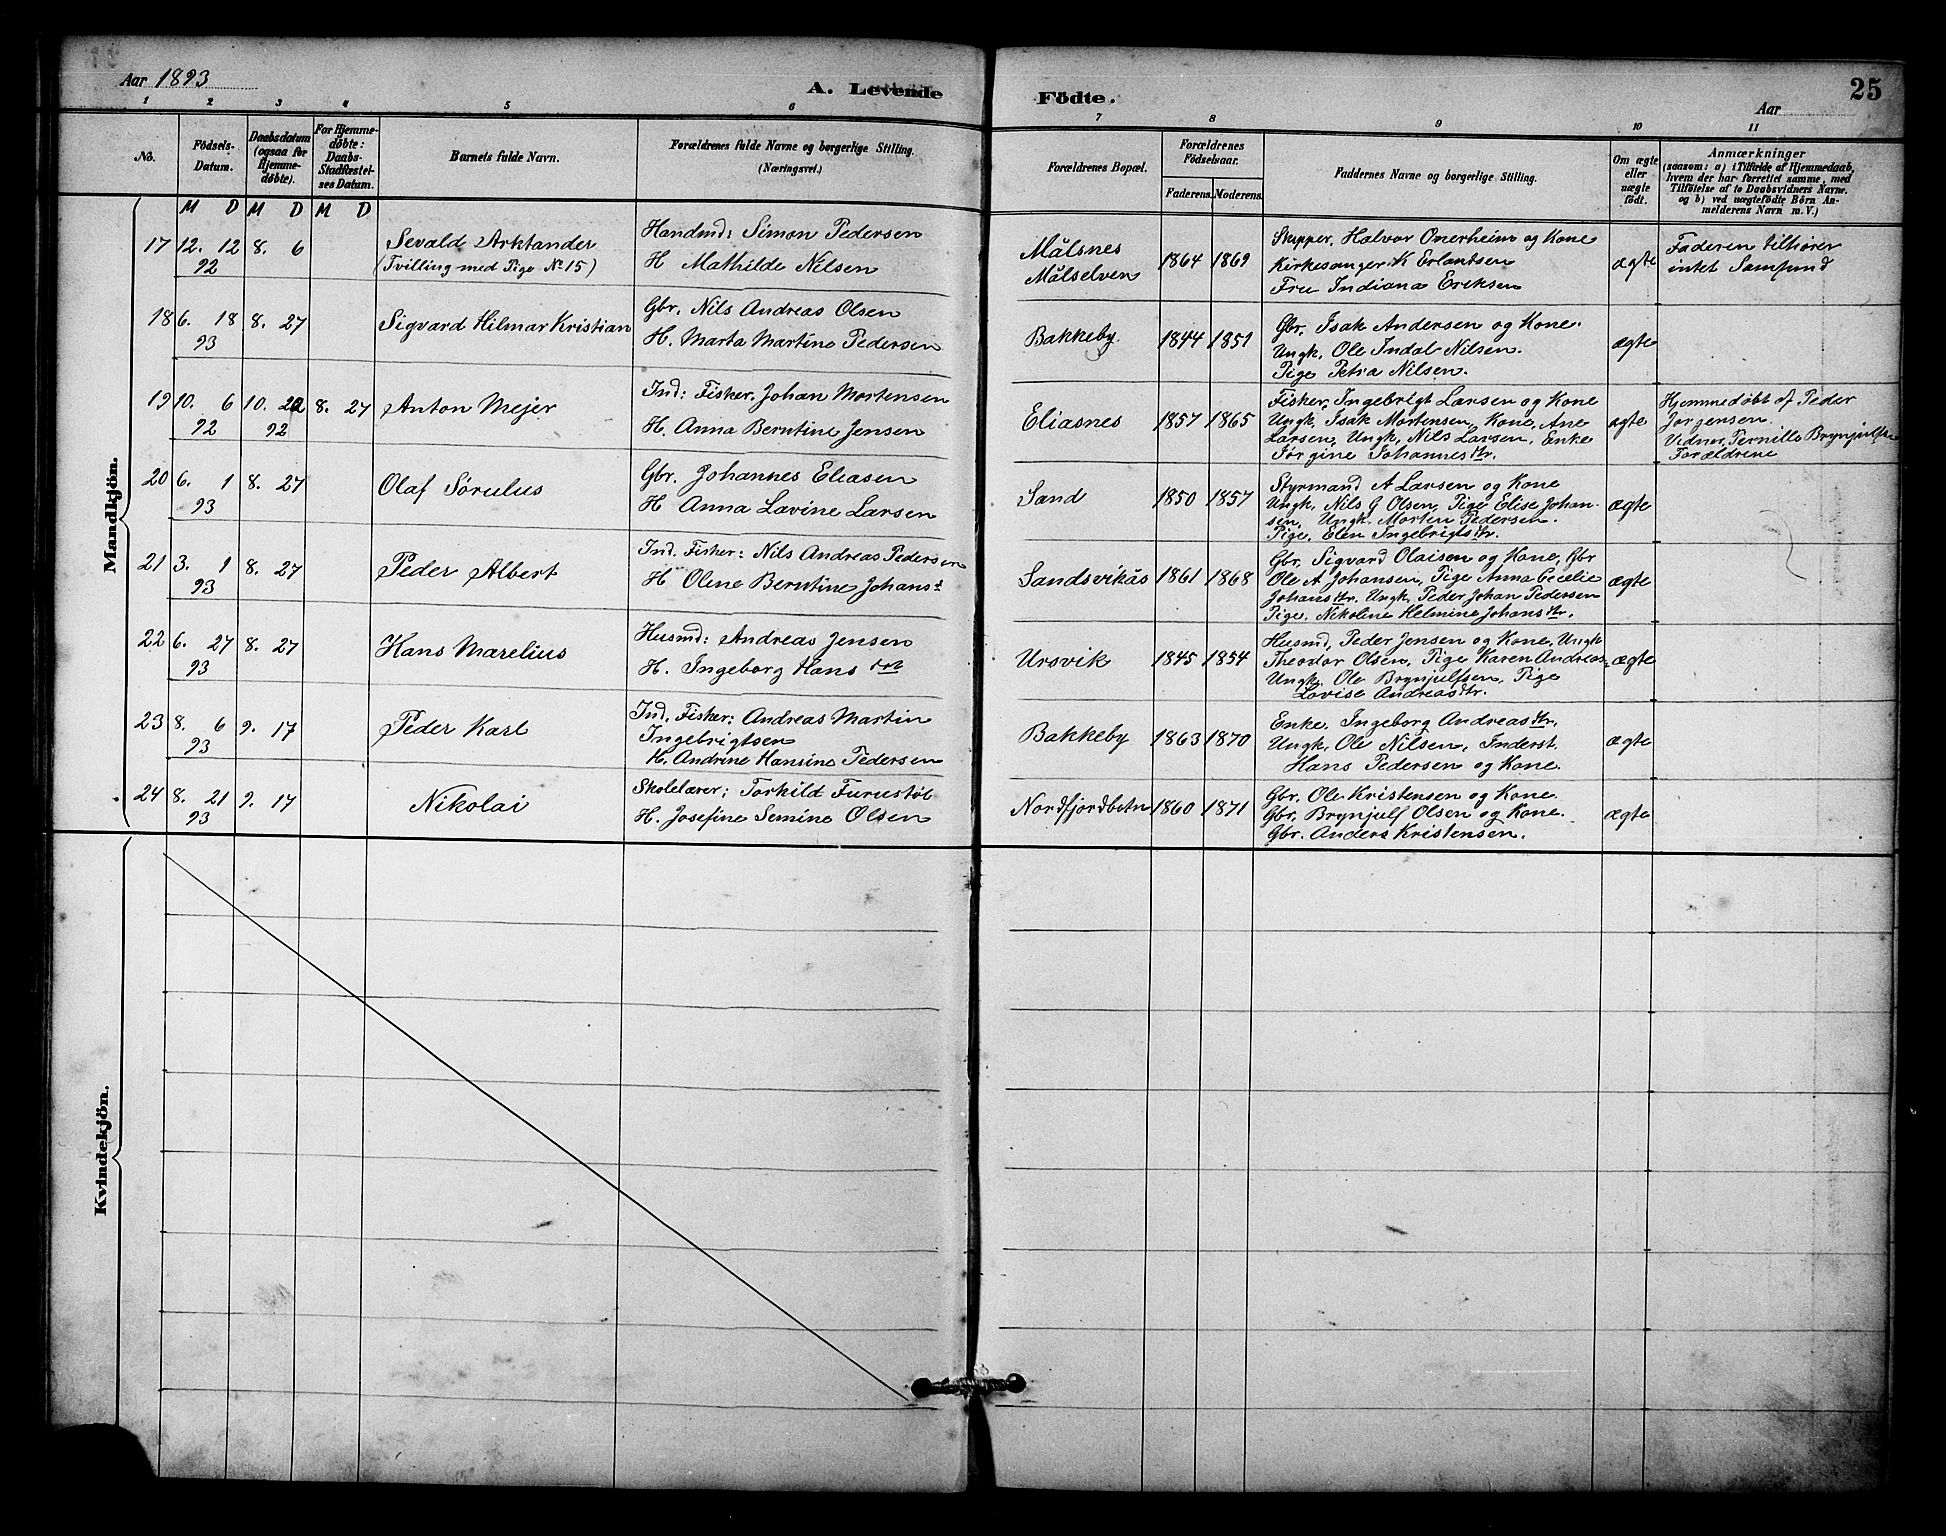 Aar 1893
A. Levende
Födte.
Aar
25
1 2 3 4 5 6 7 8 9 10 11
No.
Födsels-
Datum.
Daabsdatum
(ogsaa for
Hjemme-
døbte).
For Hjemme-
døbte:
Daabs-
Stadfæstel-
ses Datum.
Barnets fulde Navn.
Forældrenes fulde Navne og borgerlige Stilling.
(Næringsvei.)
Forældrenes Bopæl.
Forældrenes
Födselsaar.
Faderens. Moderens.
Faddernes Navne og borgerlige Stilling.
Om ægte
eller
uægte
født.
Anmærkninger
(saasom: a) i Tilfælde af Hjemmedaab,
hvem der har forrettet samme, med
Tilføielse af to Daabsvidners Navne.
og b) ved uægtefødte Börn An-
melderens Navn m. V.)
M D M D M D
Mandkjön.
17 12. 12 92 8. 6
Sevald Arktander
(Tvilling med Pige No 15)
Handmd: Simon Pedersen
H Mathilde Nilsen
Målsnes
Målselven
1864 1869
Skipper, Halvor Onerheim og Kone
Kirkesanger K Erlandsen
Fru Indiana Eriksen
ægte
Faderen tilhører
intet Samfund
18 6. 18 93 8. 27
Sigvard Hilmar Kristian
Gbr. Nils Andreas Olsen
H. Marta Martine Pedersen
Bakkeby.
1844 1851
Gbr. Isak Andersen og Kone.
Ungk. Ole Indal Nilsen.
Pige Petra Nilsen.
ægte
19 10. 6 92 10. 22 92 8. 27
Anton Mejer
Ind: Fisker. Johan Mortensen
H. Anna Berntine Jensen
Eliasnes
1857 1865
Fisker, Ingebrigt Larsen og Kone
Ungk. Isak Mortensen, Kone, Ane
Larsen, Ungk, Nils Larsen, Enke
Jørgine Johannesdtr.
ægte
Hjemmedøbt af Peder
Jørgensen.
Vidner, Pernille Brynjulfsen
Forældrene
20 6. 1 93 8. 27
Olaf Sørulus
Gbr. Johannes Eliasen
H Anna Lavine Larsen
Sand
1850 1857
Styrmand A Larsen og Kone
Ungk, Nils G Olsen, Pige Elise Johan-
sen, Ungk. Morten Pedersen.
Pige, Elen Ingebrigtsdtr.
ægte
21 3. 1 93 8. 27
Peder Albert
Ind. Fisker: Nils Andreas Pedersen
H Olene Berntine Johanst
Sandsvikås
1861 1868
Gbr, Sigvard Olaisen og Kone, Gbr
Ole A Johansen, Pige Anna Cecelie
Johansdtr. Ungk. Peder Johan Pedersen
Pige, Nikoline Helmine Johansdtr.
ægte
22 6. 27 93 8. 27
Hans Marelius
Husmd: Andreas Jensen
H. Ingeborg Hans dtr
Ursvik
1845 1854
Husmd, Peder Jensen og Kone, Ungk
Theodor Olsen, Pige Karen Andreas-
Ungk. Ole Brynjulfsen, Pige
Lovise Andreasdtr.
ægte
23 8. 6 93 9. 17
Peder Karl
Ind. Fisker: Andreas Martin
Ingebrigtsen
H. Andrine Hansine Pedersen
Bakkeby
1863 1870
Enke, Ingeborg Andreasdtr,
Ungk, Ole Nilsen, Inderst.
Hans Pedersen og Kone.
ægte
24 8. 21 93 9. 17
Nikolai
Skolelærer; Torkild Furustøl
H. Josefine Semine Olsen
Nordfjordbotn
1860 1871
Gbr. Ole Kristensen og Kone
Gbr, Brynjulf Olsen og Kone.
Gbr. Anders Kristensen.
ægte
Kvindekjön.